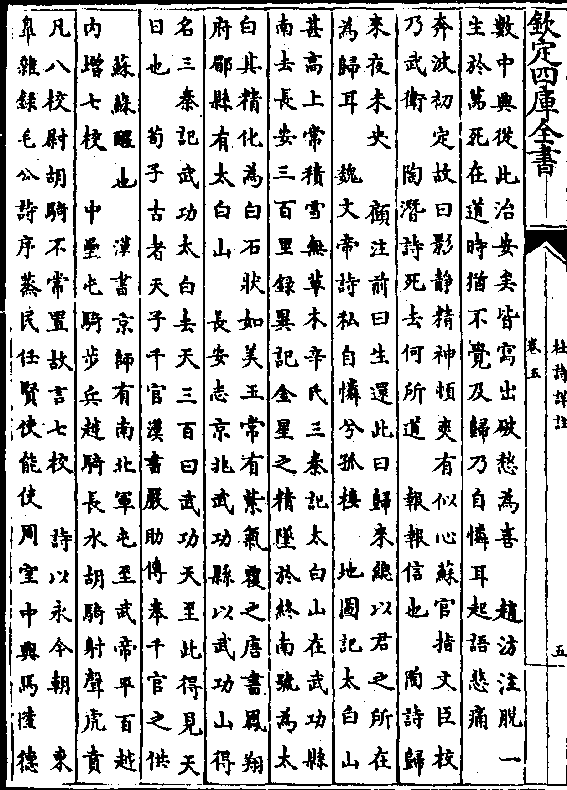 欽定四庫全書
杜詩詳註
卷五
五
數中興從此治安矣皆寫出破愁為喜　趙汸注脫一
生於萬死在道時猶不覺及歸乃自憐耳起語悲痛
奔波初定故曰影靜精神頓爽有似心蘇官指文臣校
乃武衛　陶潛詩死去何所道　報報信也　陶詩歸
來夜未央　顧注前曰生還此曰歸來總以君之所在
為歸耳　魏文帝詩私自憐兮孤棲　地圖記太白山
甚高上常積雪無草木辛氏三秦記太白山在武功縣
南去長安三百里録異記金星之精墜於終南號為太
白其精化為白石狀如美玉常有紫氣覆之唐書鳳翔
府郿縣有太白山　長安志京兆武功縣以武功山得
名三秦記武功太白去天三百曰武功天至此得見天
日也　荀子古者天子千官漢書嚴助傳奉千官之供
蘇蘇醒也　漢書京師有南北軍屯至武帝平百越
内增七校　中壘屯騎步兵越騎長水胡騎射聲虎賁
凡八校尉胡騎不常置故言七校　詩以永今朝　東
臯雜録毛公詩序蒸民任賢使能使周室中興馬陸德